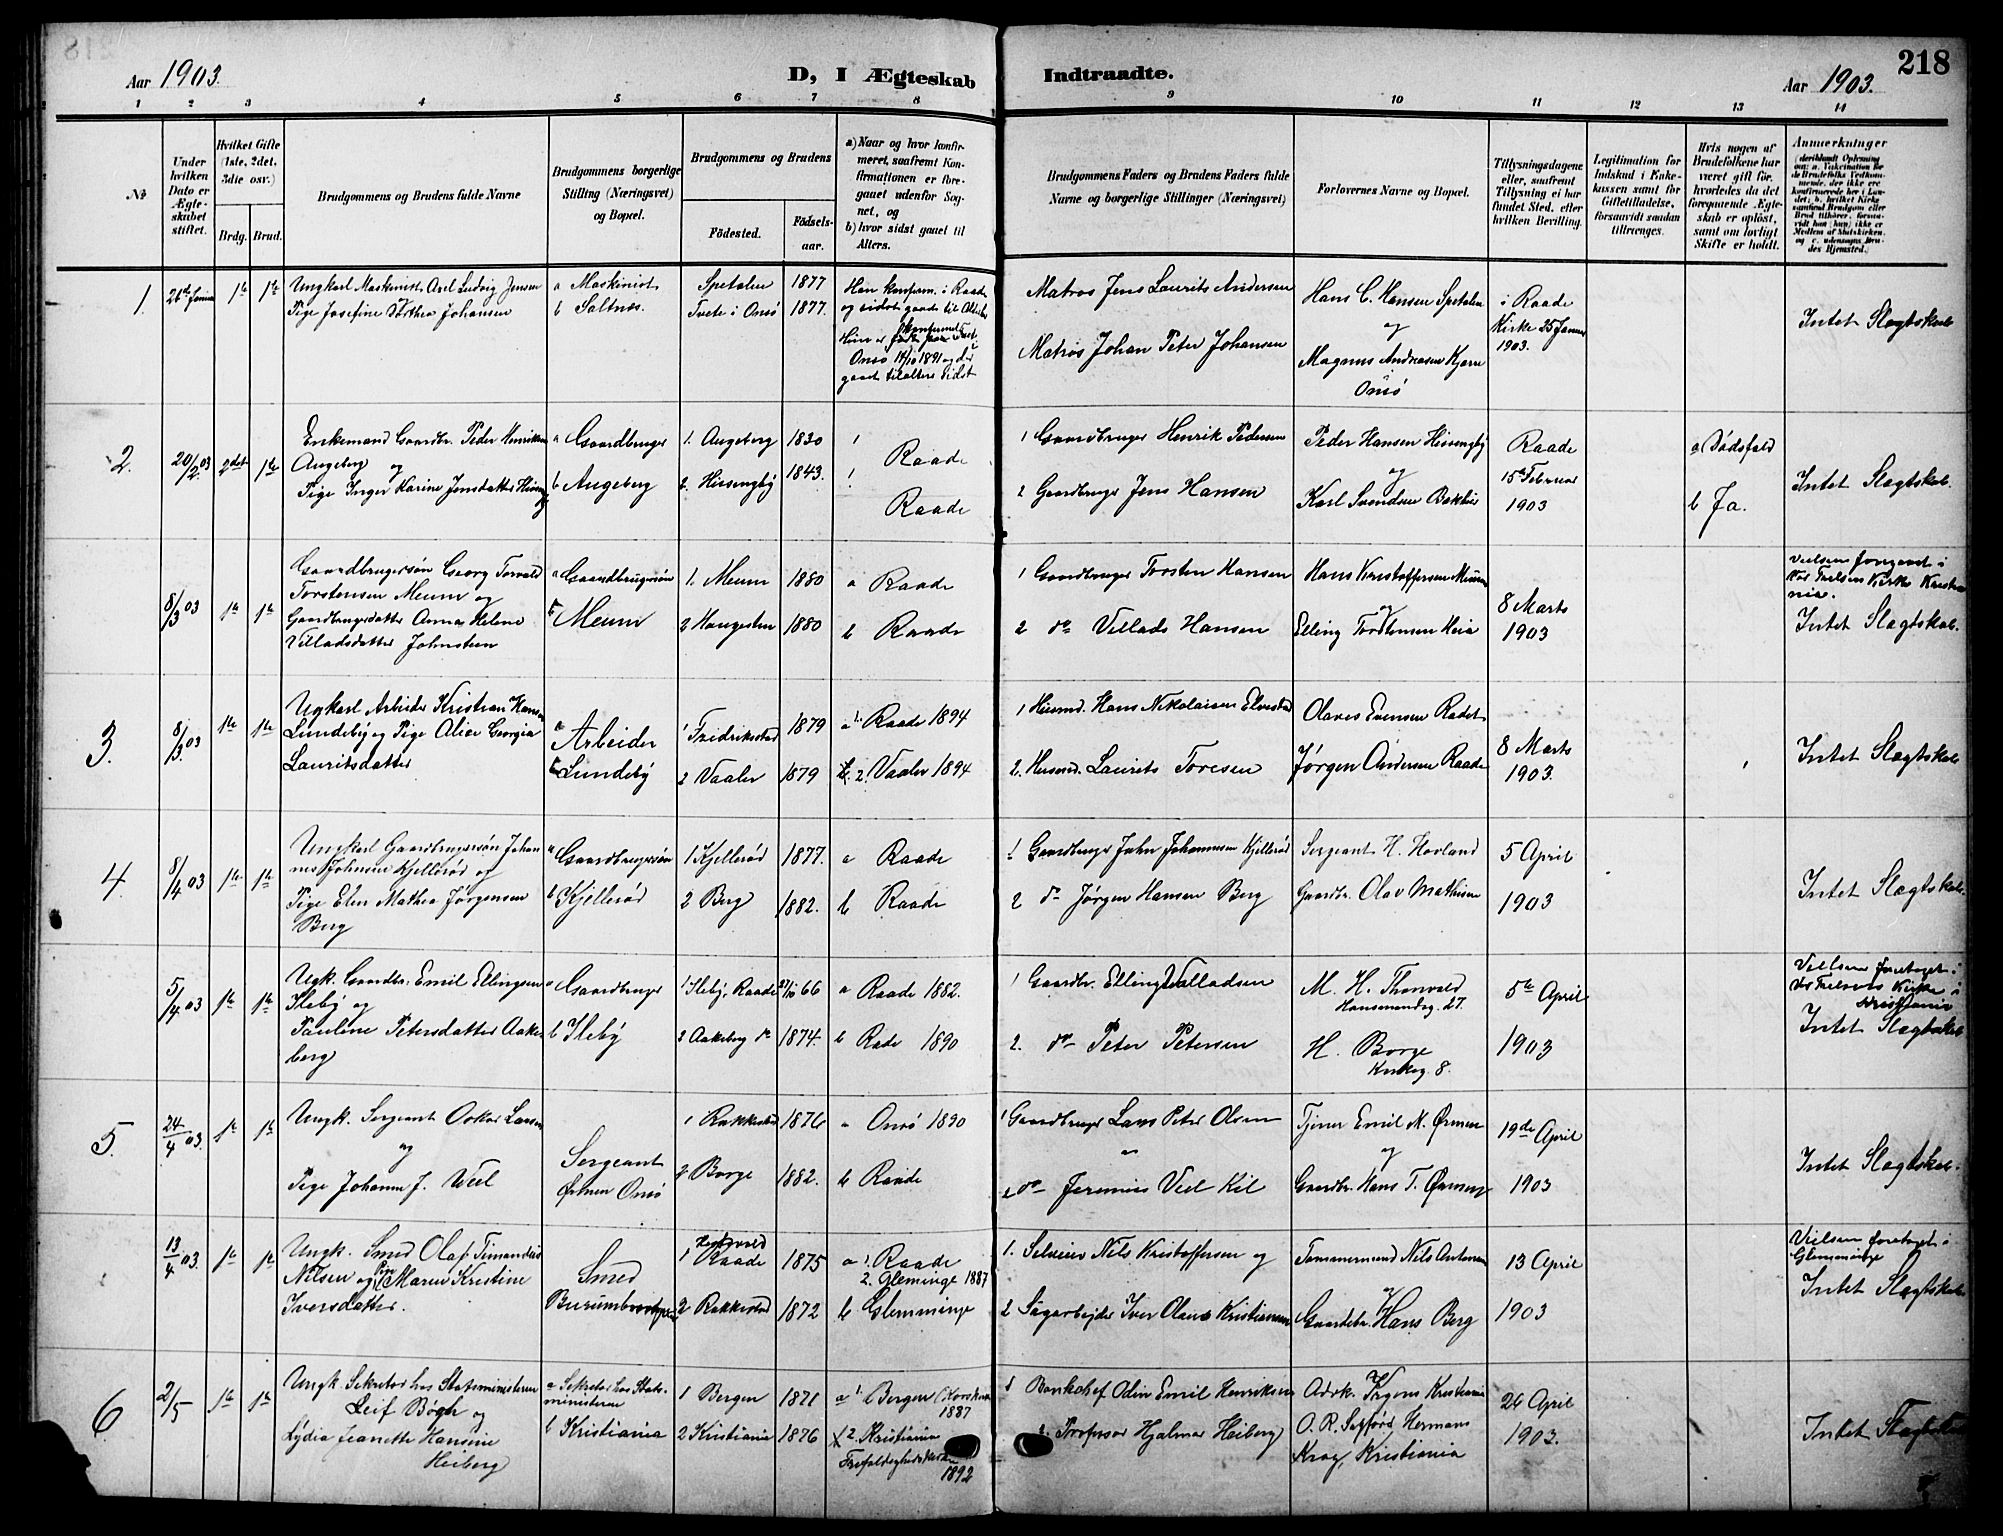 218
Aar 1903.
D, I Ægteskab Indtraadte.
Aar 1903.
1 2 3 4 5 6 7 8 9 10 11 12 13 14
№
Under hvilken Dato er Ægteskabet stiftet.
Hvilket Gifte (1ste, 2det, 3die osv.)
Brdg. Brud.
Brudgommens og Brudens fulde Navne
Brudgommens borgerlige Stilling (Næringsvei) og Bopæl.
Brudgommens og Brudens
Fødested.
Fødselsaar.
a) Naar og hvor konfirmeret, saafremt Konfirmationen er foregaaet udenfor Sognet, og
b) hvor sidst gaaet til Alters.
Brudgommens Faders og Brudens Faders fulde Navne og borgerlige Stillinger (Næringsvei)
Forlovernes Navne og Bopæl.
Tillysningsdagene eller, saafremt Tillysning ei har fundet Sted, efter hvilken Bevilling.
Legitimation for Indskud i Enkekassen samt for Giftetilladelse, forsaavidt saadan tiltrænges.
Hvis nogen af Brudefolkene har været gift før, hvorledes da det foregaaende Ægteskab er opløst, samt om lovligt Skifte er holdt.
Anmærkninger
1. 1ste 1ste
Ungkarl Maskinist Axel Ludvig Jensen
Pige Josefine Dorthea Johansen
a Maskinist
b Saltnes.
Spetalen 1877
Tvete i Onsø 1877.
Han konfirm. i Raade
og sidst gaaet til Alters
Onsø 14/10 1891 og der
gaaet til alters sidst
Matros Jens Laurits Andersen
Matros Johan Peter Johansen
Hans C. Hansen Spetalen
og
Magnus Andreasen Kjærre
Onsø
i Raade
Kirke 25 Januar
1903.
Intet Slægtskab
2. 20/2 03 2det 1ste
Enkemand Gaardbr. Peder Henriksen
Augeberg og
Pige Inger Karine Jensdatter
a Gaardbruger
b Augeberg
1. Augeberg 1830
2. Hissengby 1843.
Raade
Raade
1 Gaardbruger Henrik Pedersen
2 Gaardbruger Jens Hansen
Peder Hansen Hissengby
og
Karl Svendsen
Raade
15de Februar
1903
a Dødsfald
b Ja.
Intet Slægtskab.
8/3 03 1ste 1ste
Gaardbrugersøn Georg Torvald
Torstensen Meum og
Gaardbrugerdatter Anna Helene
Villadsdatter Johnsteen
a Gaardbrugersøn
b Meum
1. Meum 1880
2 Haugesten 1880
a Raade
b Raade
1 Gaardbruger Torsten Hansen
2 do Villads Hansen
Hans Kristoffersen Meum
og
Elling Torstensen
8 Marts
1903
Vielsen foregaaet i
Vor Frelsers Kirke Kristia
nia.
Intet Slægtskab.
3. 8/3 03 1ste 1ste
Ugkarl Arbeider Kristian Hansen
Lundeby og Pige Alice Georgia
Lauritsdatter
a Arbeider
b Lundeby
1 Fredriksstad 1879
2 Vaaler 1879
a 1. Raade 1894
2. Vaaler 1894
1 Husmd. Hans Nikolaisen Elvestad
2. Husmd. Laurits Toresen
Olaves Evensen Rødst
Jørgen Andersen Raade
8 Marts
1903.
Intet Slægtskab
4 8/4 03 1ste 1ste
Ungkarl Gaardbrugersøn Johan
nes Johnsen Kjellerød og
Pige Elen Mathea Jørgensen
Berg
a Gaardbrugersøn
b Kjellerød
1 Kjellerød 1877.
2 Berg 1882.
a Raade
b Raade
1 Gaardbruger John Johannesen Kjellerød
2 do Jørgen Hansen Berg
Sergeant H. Hovland
Gaardbr. Olav Mathisen
5 April
1903
Intet Slægtskab.
5/4 03 1ste 1ste
Ugk. Gaardbr. Emil Ellingsen
Ileby og
Pauline Petersdatter Aake
berg
a Gaardbruger
b Ileby
1 Ileby, Raade 27/10 66
2 Aakeberg do 1874.
a Raade 1882.
b Rade 1890
1 Gaardbr. Elling Valladsen
2. do Peter Petersen
M. H. Thorvald
27.
H. Borge
Kirkeg. 8.
5te April
1903
Vielsen foretaget i
Vor Frelsers Kirke i
Kristiania
Intet Slægtskab
5. 24/4 03. 1ste 1ste
Ungk. Sergeant Oskar Larsen
og
Pige Johanne J. Weel
Sergeant
Ørmen Onsø
1 Rakkestad 1876
2 Borge 1882.
a Onsø 1890
b Raade
1 Gaardbruger Lars Peter Olsen
2 do Jeremias Veel Kil
Tjener Emil M. Ørmen
og
Gaardbr. Hans T. Ørmen
19de April
1903
Intet Slægtskab.
13/4 03. 1ste 1ste
Ungk. Smed Olaf Timandius
Nilsen og Pige Maren Kristine
Iversdatter.
Smed
1 Raade 1875
2 Rakkestad 1872
a 1. Raade
2. Gleminge 1887
b Glemminge
1. Selveier Nils Kristoffersen og
2 Sagarbejder Iver Olaus Kristiansen
Tømmermand Nils Antonsen
og
Gaardbr. Hans Berg
13 April
1903
Vielsen foretaget i
Glemminge
Intet Slægtskab
6 2/5 1ste 1ste
Ungk. Sekretær hos Statsministeren
Leif Bøgh og
Lydia Jeanette Hansine
Heiberg
a Sekretær hos Stats-
ministeren
b Kristiania
1 Bergen 1871
2 Kristiania 1876
a 1. Bergen (Korskirken
1887
2. Kristiania
Trefoldighedskirken
1892
1 Bankchef Odin Emil Henriksen
2. Professor Hjalmar Heiberg
Advk. Kristiania
O. R. Hermans
Krag, Kristiania
26 April
1903.
Intet Slægtskab